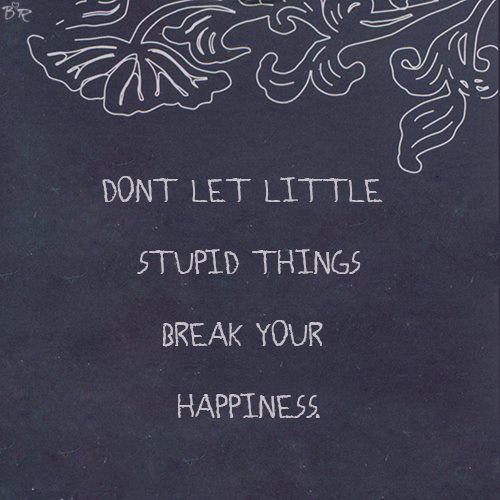 BR
DONT LET LITTLE
STUPID THINGS
BREAK YOUR
HAPPINESS.